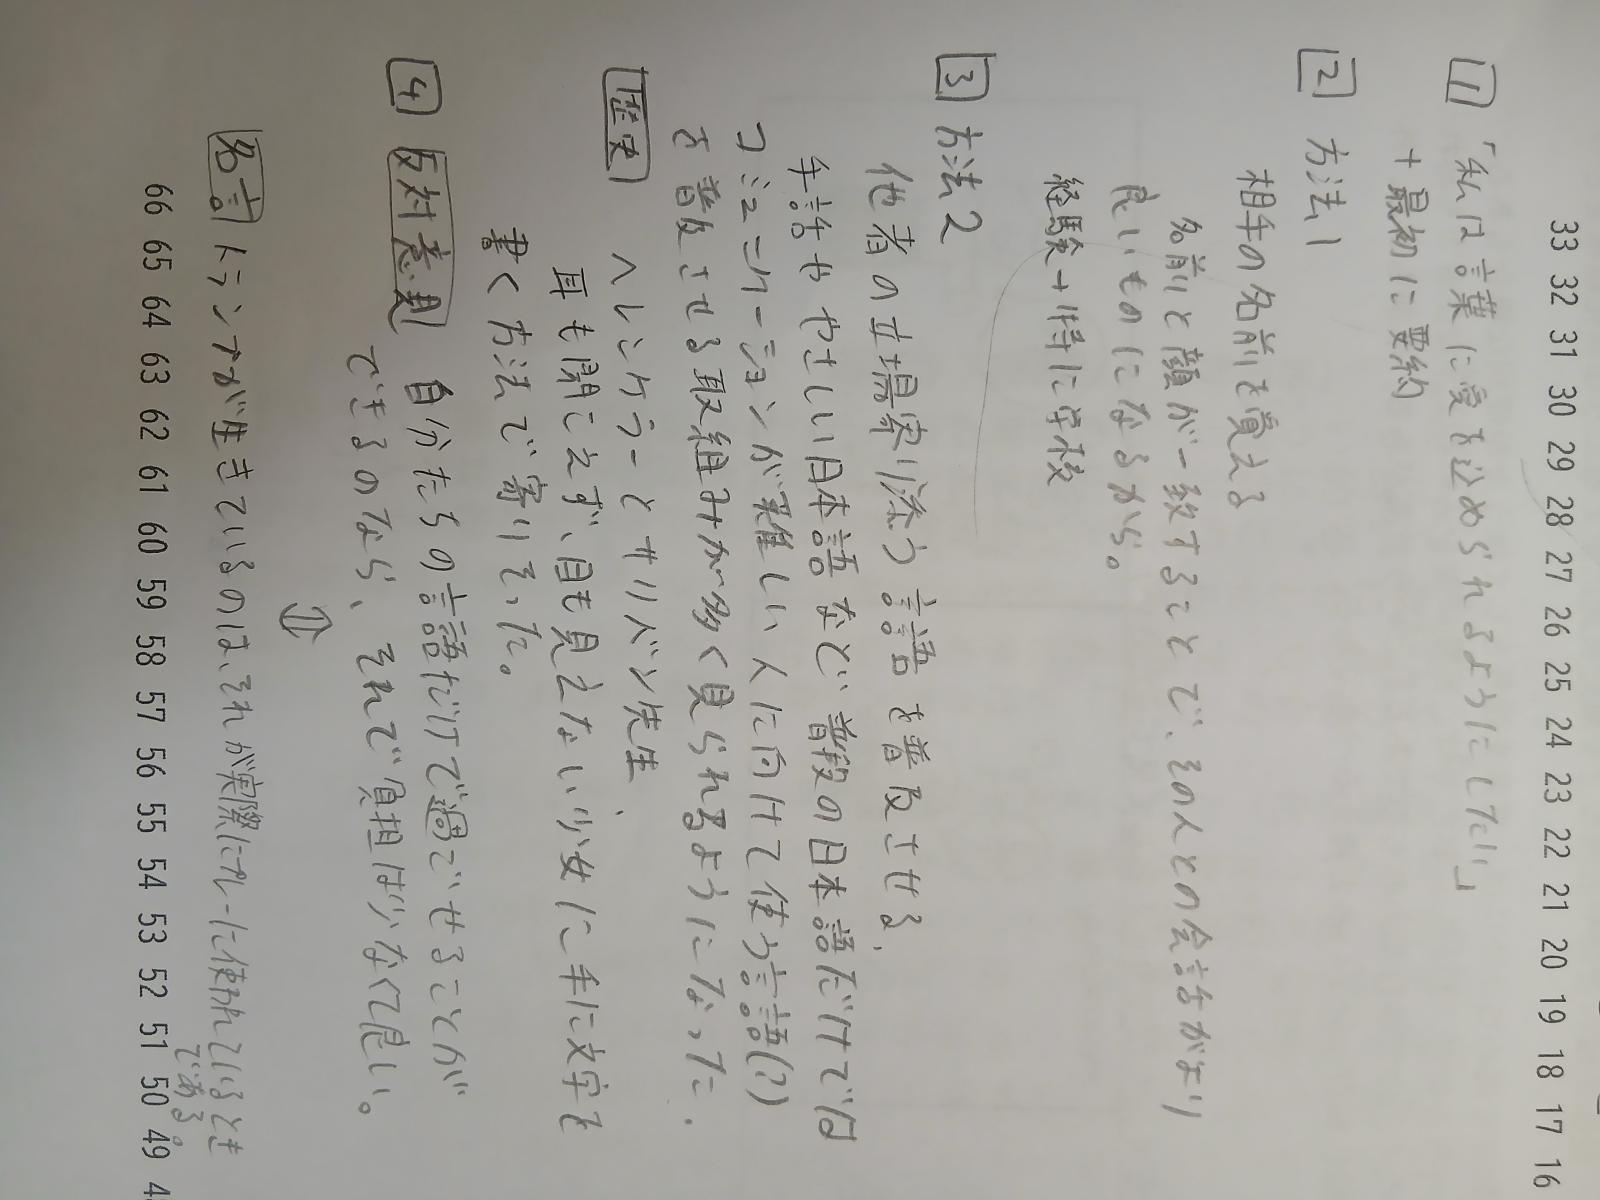 33 32 31 30 29 28 27 26 25 24 23 22 21 20 19 18 17 16
1 「私は言葉に愛を込められるようにしたい」
+最初に要約
2 方法1
相手の名前を覚える
名前と顔が一致することで、その人との会話がより
良いものになるから。
経験+特に学校
3 方法2
他者の立場寄り添う言語を普及させる、
手話ややさしい日本語など普段の日本語だけでは
コミュニケーションが難しい人に向けて使う言語(?)
を普及させる取組みが多く見られるようになった.
歴史 ヘレンケラーとサリバン先生、
耳も聞こえず、目も見えない少女に手に文字を
書く方法で寄りそった。
4 反対意見 自分たちの言語だけで過ごせることが
できるのなら、それで負担は少なくて良い。
⇕
名言 トランプが生きているのは、それが実際にプレーに使われているとき
である。
66 65 64 63 62 61 60 59 58 57 56 55 54 53 52 51 50 49